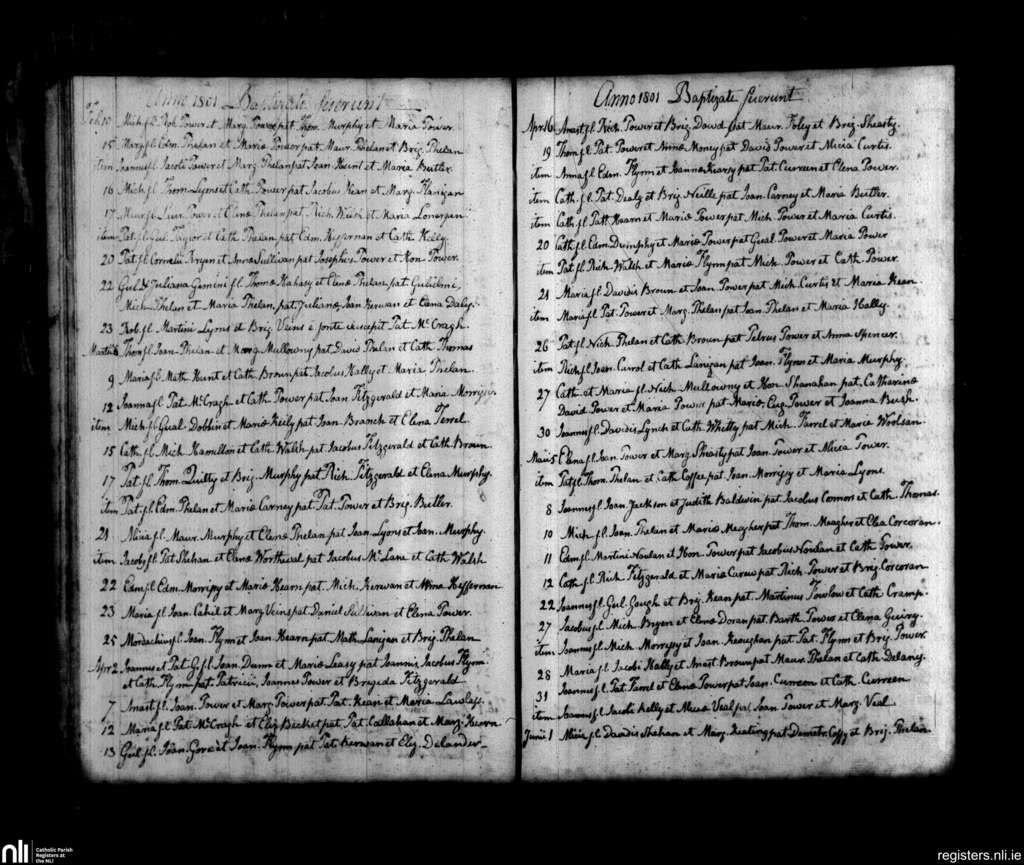 Anno 1801 Baptizati fuerunt
Feb 10 Mich. fl. Rob. Power et Marg. Power pat Thom. Murphy et Maria Power
15 Marg. fl. Edm. Phelan et Maria Power pat Maur. Phelan et Brig. Phelan
item Joannes fl. Jacobi Power et Marg. Phelan pat Joan Hunt et Maria Butler
16 Mich. fl. Thom. Lyons et Cath. Power pat Jacobus Kean et Marg. Flanigan
17 fl. Power et Elena Phelan pat. Rich. et Maria Lonergan
item Pat. fl. Taylor et Cath. Phelan pat Edm. Heffernan et Cath. Kelly
20 Pat. fl. Cornelii Bryen et Anna Sullivan pat Josephus Power et Hon. Power.
22 Gul. & Juliana Gemini fl. Thomæ Fahasy et Elena Phelan, pat. Gulielmi,
Mich. Phelan et Maria Phelan, pat. Juliana Joan Kerwan et Elena Daly.
23 Rob. fl. Martini Lyons et Brig. Veins a fonte excepit Pat. McCragh.
Martii 6 Thom. fl. Joan. Phelan et Marg. Mullowny pat David Phelan et Cath. Thomas
9 Maria fl. Math. Hunt et Cath. Brown pat Jacobus Hally et Maria Phelan.
12 Joanna fl. Pat. McCragh et Cath. Power pat. Joan Fitzgerald et Maria Morrisy.
item Mich. fl. Gual. Dobbin et Maria Keily pat Joan Branch et Elena Terrel
15 Cath. fl. Mich. Hamilton et Cath. Walsh pat Jacobus Fitzgerald et Cath Brown
17 Pat. fl. Thom. Quilty et Brig. Murphy pat Rich. Fitzgerald et Elena Murphy.
item Pat. fl. Edm. Phelan et Maria Carney pat Pat. Power et Brig. Butler.
21 Alicia fl. Maur. Murphy et Elena Phelan pat Joan. Lyons et Joan. Murphy
item Jacobus fl. Pat Shehan et Elena pat Jacobus McLane et Cath Walsh
22 Edm. fl. Edm. Morrisy et Maria Hearn pat. Mich. Kerwan et Anna Heffernan
23 Maria fl. Joan. Cahil et Marg. Veins pat Daniel Sullivan et Elena Power.
25 fl. Joan. Flynn et Joan Hearn pat Math. Lanigan et Brig. Phelan
Apr 2 Joannes et Pat. G. fl. Joan. Dunn et Maria Leasy pat Joannis, Jacobus Flynn
et Cath. Flynn pat. Patricii, Joannes Power et Bragida Fitzgerald
7 Anast. fl. Joan. Power et Marg. Power pat Pat. Kean et Maria Lawless.
12 Maria fl. Pat. McCragh et Eliz. Becket pat Pat. Callahan et Marg. Hearn
13 Gul. fl. Joan. Gore et Joan. Flynn pat Pat. Kerwan et Eliz. Delander
Anno 1801 Baptizati fuerunt
Apr 16 Anast. fl. Rich. Power et Brig. Dowd pat Maur. Foley et Brig. Sheasty.
19 Thom. fl. Pat. Power et Anna Money pat David Power et Alicia Curtis.
item Anna fl. Edm. Flynn et Joanna Kearsy pat Pat. Curreen et Elena Power.
item Cath. fl. Pat. Dealy et Brig. Neille pat Joan. Carney et Maria Butler.
item Cath. fl. Patt. Hearn et Maria Power pat Mich. Power et Maria Curtis.
20 Cath. fl. Edm. Dumphy et Maria Power pat Gual. Power et Maria Power
item Pat. fl. Rich. Walsh et Maria Flynn pat Mich. Power et Cath. Power.
21 Maria fl. Davidis Brown et Joan. Power pat Mich. Curtis et Maria Kean.
item Maria fl. Pat. Power et Marg. Phelan pat Joan. Phelan et Maria Hally.
26 Pat. fl. Nich. Phelan et Cath. Brown pat Petrus Power et Anna Spencer.
item Rich. fl. Joan. Carrol et Cath. Lanigan pat Joan. Flynn et Maria Murphy.
27 Cath. et Maria fl. Nich. Mullowny et Hon. Shanahan pat. Catharinæ
David Power et Maria Power pat Mariæ, Eug. Power et Joanna Bush.
30 Joannes fl. Davidis Lynch et Cath. Whelty pat Mich. Farrel et Maria Woolsan.
Maii 5 Elena fl. Joan. Power et Marg. Sheasty pat Joan. Power et Alicia Power.
item Pat. fl. Thom. Phelan et Cath. Coffee pat. Joan. Morrissy et Maria Lyons.
8 Joannes fl. Joan. Jackson et Judith Baldwin pat Jacobus Connors et Cath. Thomas.
10 Mich. fl. Joan. Phelan et Maria Meagher pat Thom. Meagher et Elea Corcoran.
11 Edm. fl. Martini Noulan et Hon. Power pat Jacobus Noulan et Cath. Power.
12 Cath. fl. Rich. Fitzgerald et Maria Carew pat Rich. Power et Brig. Corcoran
22 Joannes fl. Gul. Gough et Brig. Kean pat. Martinus Towlow et Cath. Cramp.
27 Jacobus fl. Mich. Bryen et Elena Doran pat. Barth. Power et Elena Geary
item Joannes fl. Mich. Morrissy et Joan. Keoughan pat Pat. Flynn et Brig. Power
28 Maria fl. Jacobi Hally et Anast. Brown pat Maur. Phelan et Cath. Delany.
31 Joannes fl. Pat. Farrel et Elena Power pat Joan. Curreen et Cath. Curreen
item Joannes fl. Jacobi Kelly et Alicia Veal pat Joan Power et Marg. Veal.
Junii 1 Alicia fl. Davidis Shehan et Marg. Keating pat Demetr. Coffy et Brig. Phelan
nli
Catholic Parish
Registers at
the NLI
registers.nli.ie